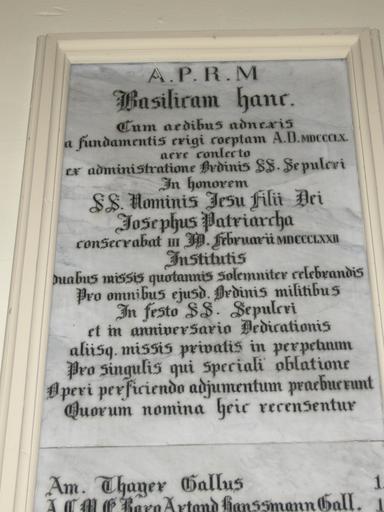 A.P.R.M
Basilicam hanc.
Cum aedibus adnexis
a fundamentis erigi coeptam A.D. MDCCCLX.
aere conlecto
ex administratione Ordinis SS. Sepulcri
In honorem
SS. Nominis Jesu Filii Dei
Josephus Patriarcha
consecrabat III ID. Februarii MDCCCLXXII
Institutis
Duabus missis quotannis solemniter celebrandis
Pro omnibus ejusd. Ordinis militibus
In festo SS. Sepulcri
et in anniversario Dedicationis
aliisq. missis privatis in perpetuum
Pro singulis qui speciali oblatione
Operi perficiendo adjumentum praebuerunt
Quorum nomina heic recensentur
Am. Thayer Gallus
Baro Artand Haussmann Gall.